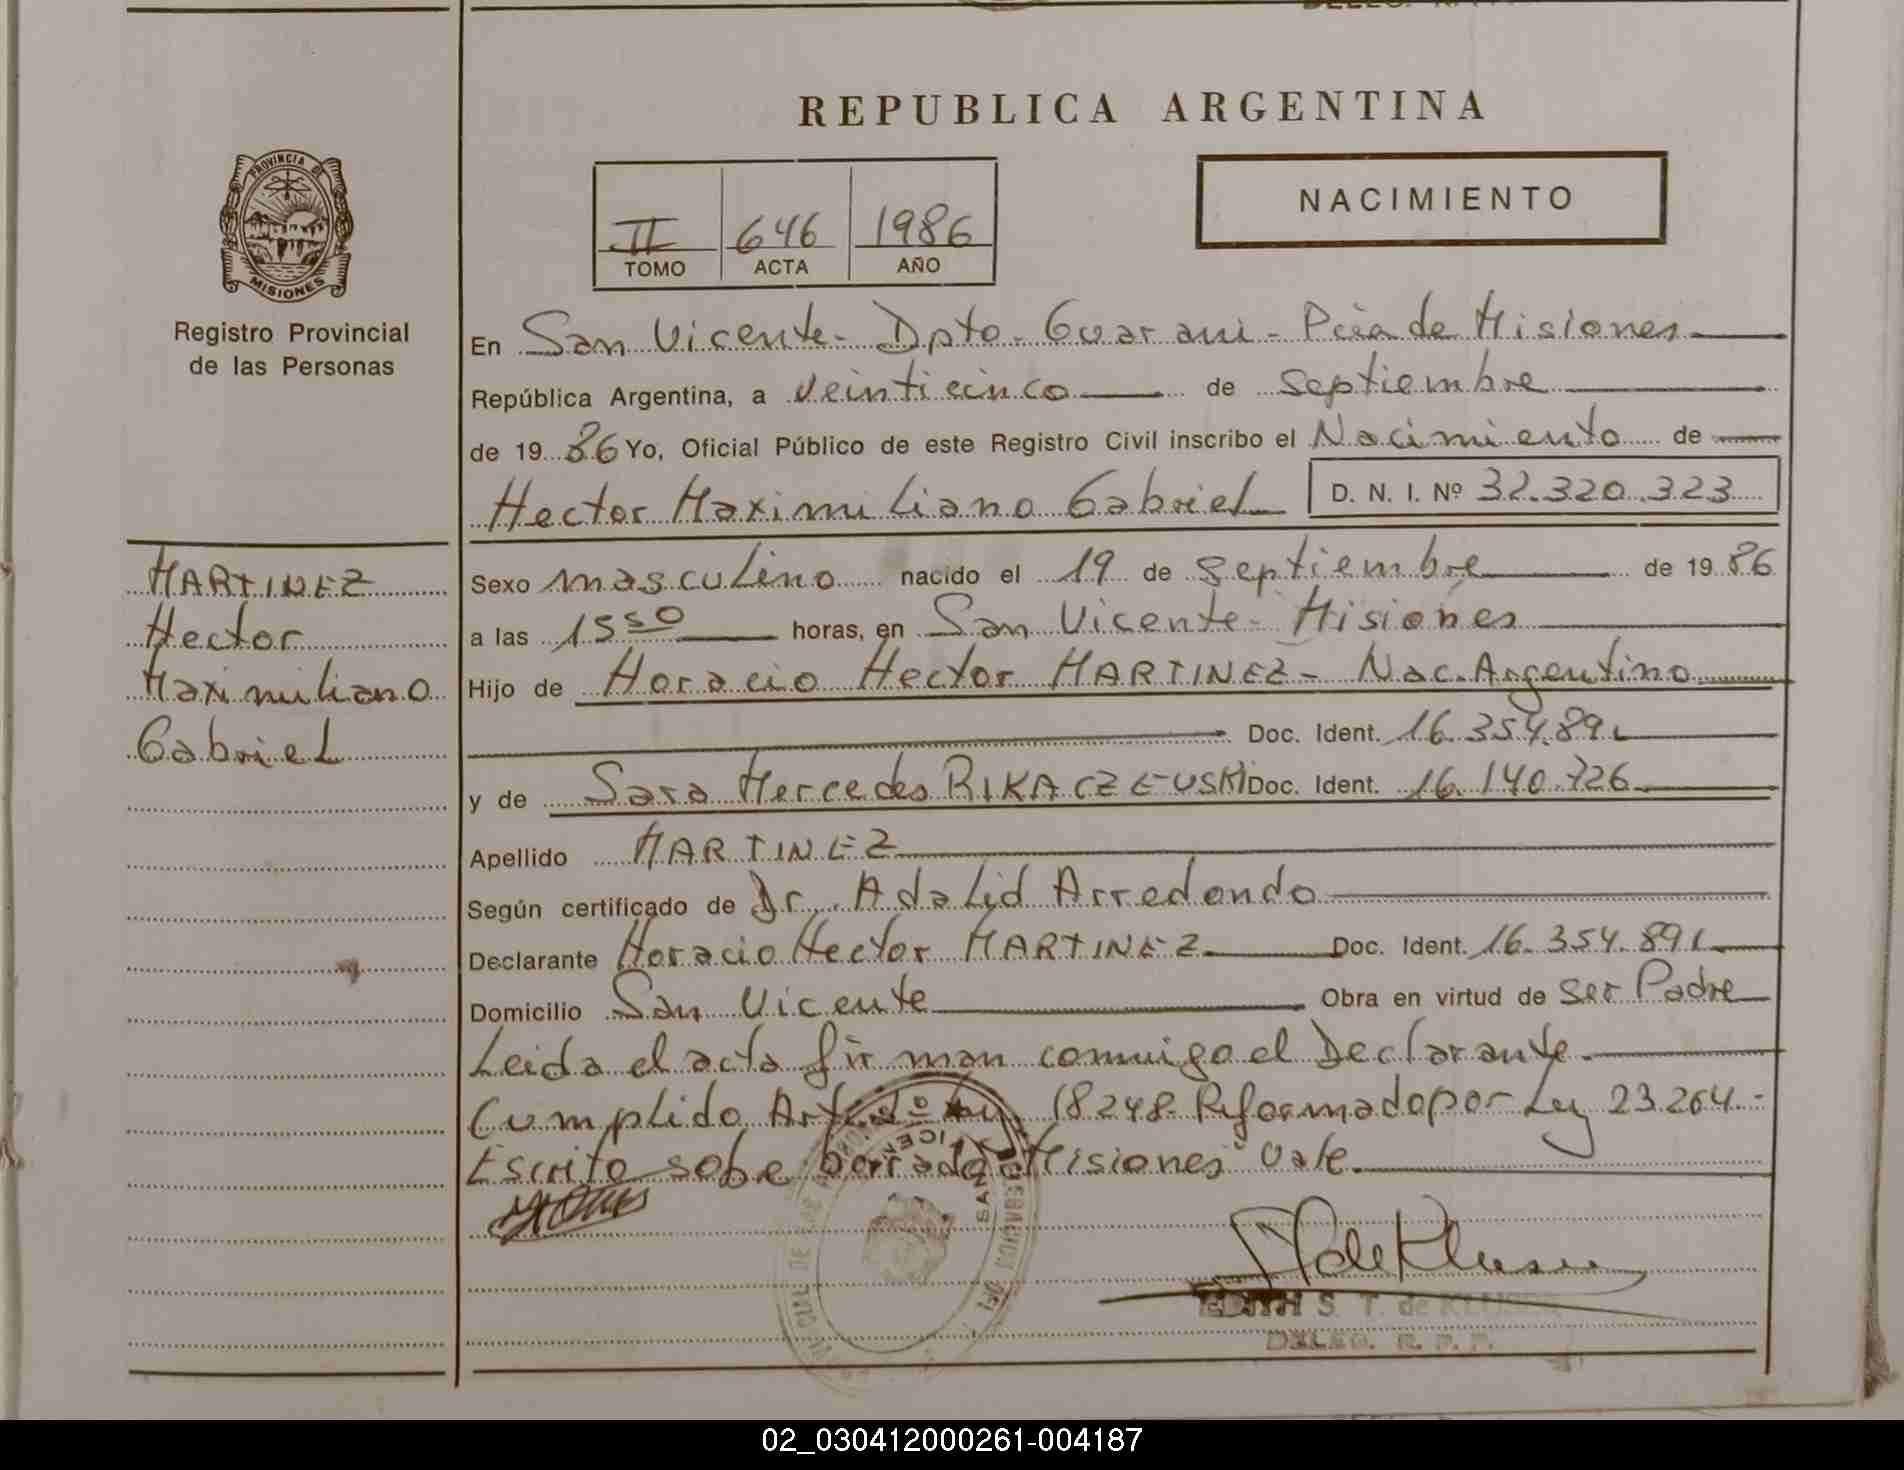 REPUBLICA ARGENTINA
PROVINCIA DE
MISIONES
Registro Provincial
de las Personas
II 646 1986
TOMO ACTA AÑO
NACIMIENTO
En San Vicente - Dpto - Guarani - Pcia de Misiones
República Argentina, a veinticinco de septiembre
de 19 86 Yo, Oficial Público de este Registro Civil inscribo el Nacimiento de
Hector Maximiliano Gabriel D. N. I. Nº 32.320.323
MARTINEZ
Hector
Maximiliano
Gabriel
Sexo masculino nacido el 19 de septiembre de 19 86
a las 15 50 horas, en San Vicente - Misiones
Hijo de Horacio Hector MARTINEZ - Nac. Argentino
Doc. Ident. 16.354.891
y de Sara Mercedes RIKACZEUSKI Doc. Ident. 16.140.726
Apellido MARTINEZ
Según certificado de Dr. Adalid Arredondo
Declarante Horacio Hector MARTINEZ Doc. Ident. 16.354.891
Domicilio San Vicente Obra en virtud de ser Padre
Leida el acta firman conmigo el Declarante
Cumplido 18248 Reformado por Ley 23.264.-
Escrito sobe borrado Misiones Vale.
EDITH S. T. de KLUSER
DELEG. R. P. P.
02_030412000261-004187